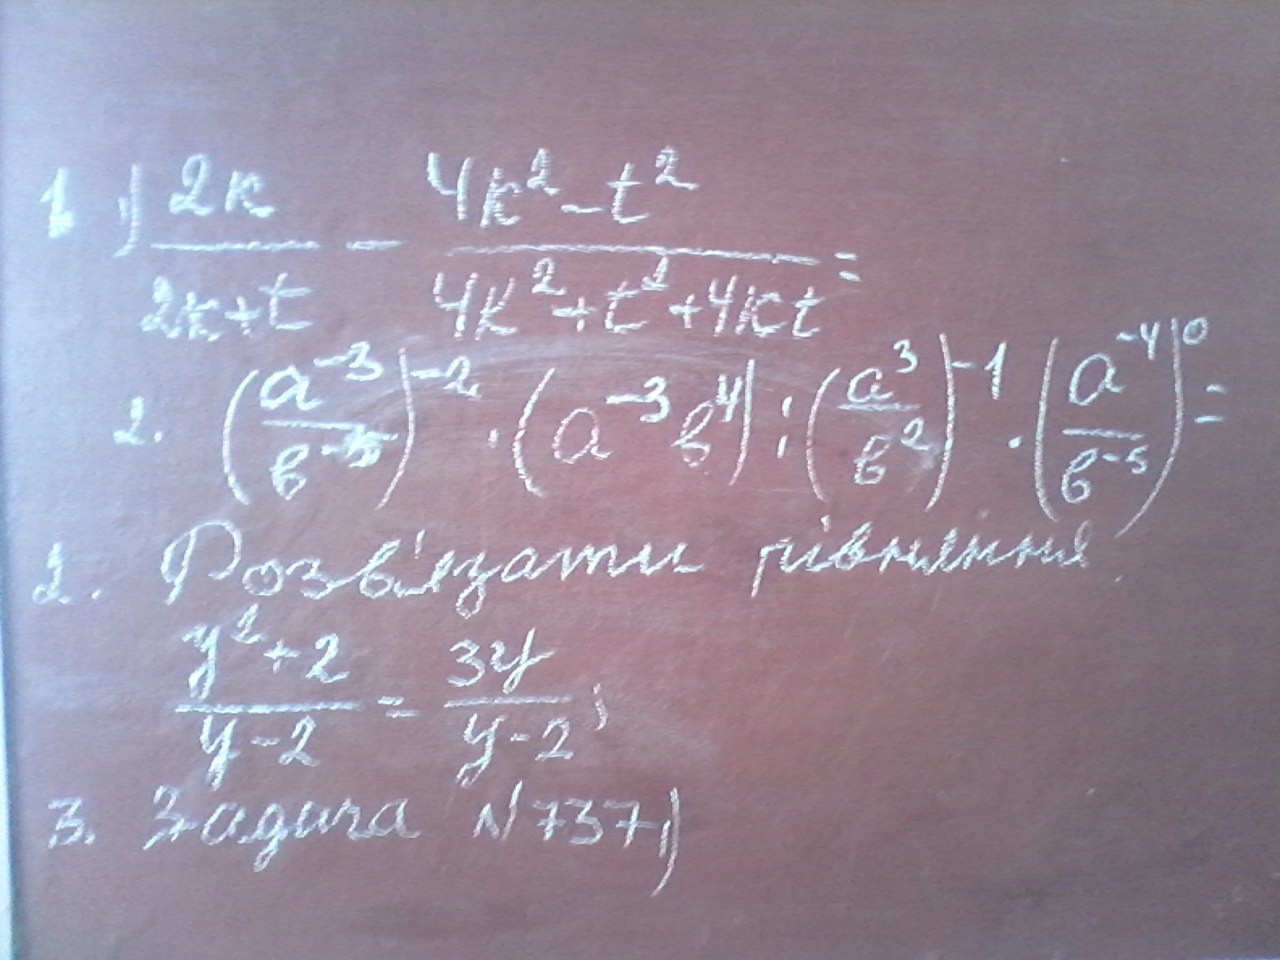 1. 1) 2k/(2k+t) - (4k²-t²)/(4k²+t²+4kt) =
2. (a⁻³/в⁻⁵)⁻² · (a⁻³в⁴) : (a³/в²)⁻¹ · (a⁻⁴/в⁻⁵)⁰ =
2. Розв'язати рівняння
(y²+2)/(y-2) = 3y/(y-2);
3. Задача №737 1)